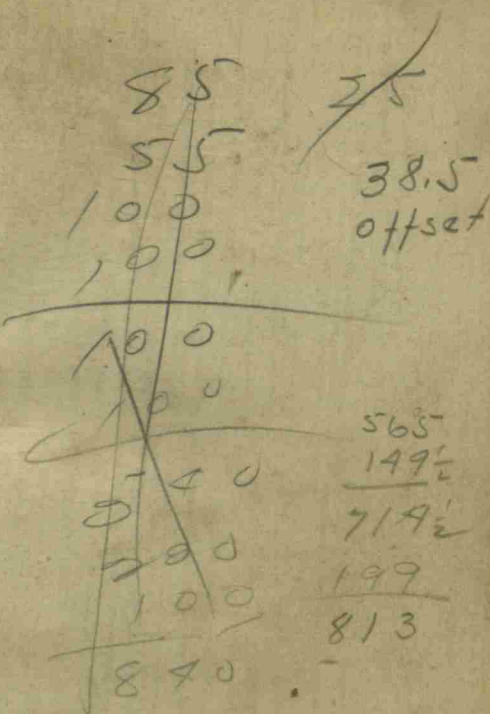 85
55
100
100
100
100
540
200
100
840
25
38.5
offset
565
149½
714½
199
813